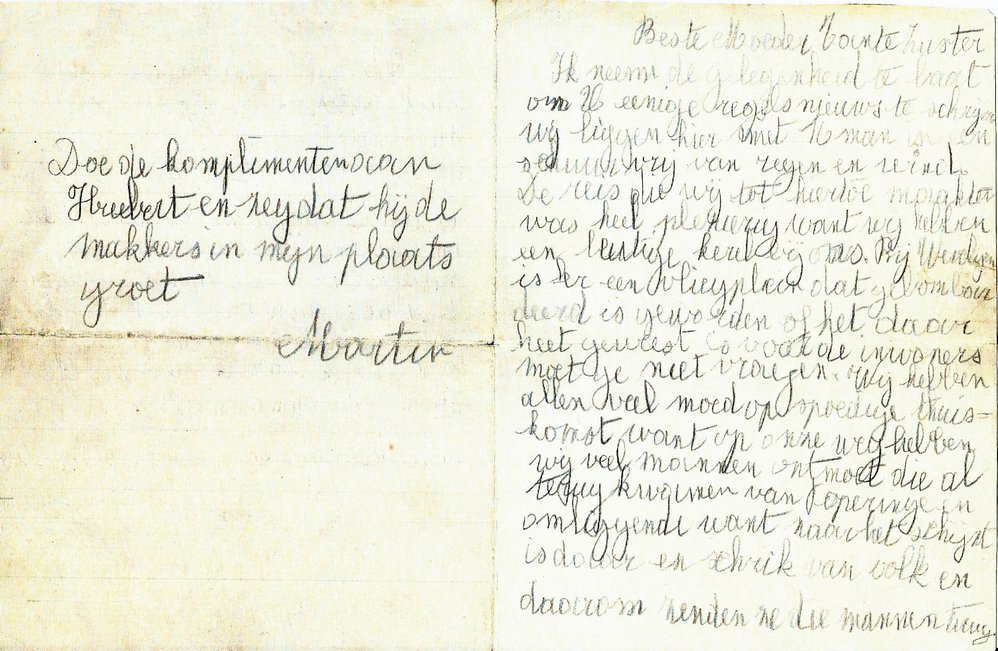 Beste Moeder, Tante Zuster
Ik neem de gelegenheid te baat
om U eenige regels nieuws te schryven
wy liggen hier met man in een
schuur vry van regen en wind.
De reis die wij tot hiertoe maakten
was heel plezierig want wy hebben
een lustige kerel by ons. By
is er een vliegplein dat gebombar
deerd is geworden of het daar
heet geweest is voor de inwoners
moet ge niet vragen. Wij hebben
allen veel moed op spoedige thuis=
komst want op onze weg hebben
wij veel mannen ontmoet die al
terug kwamen van Poperinge en
omliggende want naar het schijnt
is daar en schrik van volk en
daarom zenden ze die mannen terug
Doe de komplimenten aan
en zeg dat hij de
makkers in myn plaats
groet
Martin